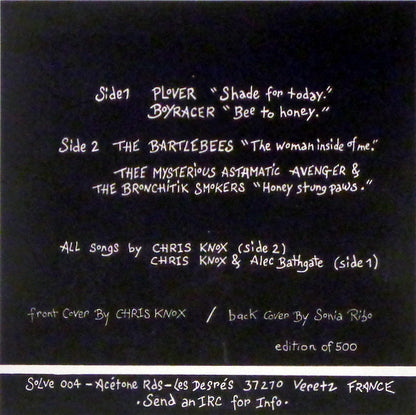 Side 1 PLOVER "Shade for today."
BOYRACER "Bee to honey."
Side 2 THE BARTLEBEES "The woman inside of me."
THEE MYSTERIOUS ASTAMATIC AVENGER &
THE BRONCHITIK SMOKERS "Honey stung paws."
ALL Songs by CHRIS KNOX (side 2)
CHRIS KNOX & Alec Bathgate (side 1)
front Cover By CHRIS KNOX / back Cover By Sonia Ribo
edition of 500
Solve 004 - Acétone Rds - Les Després 37270 Veretz FRANCE
· Send an IRC for Info ·